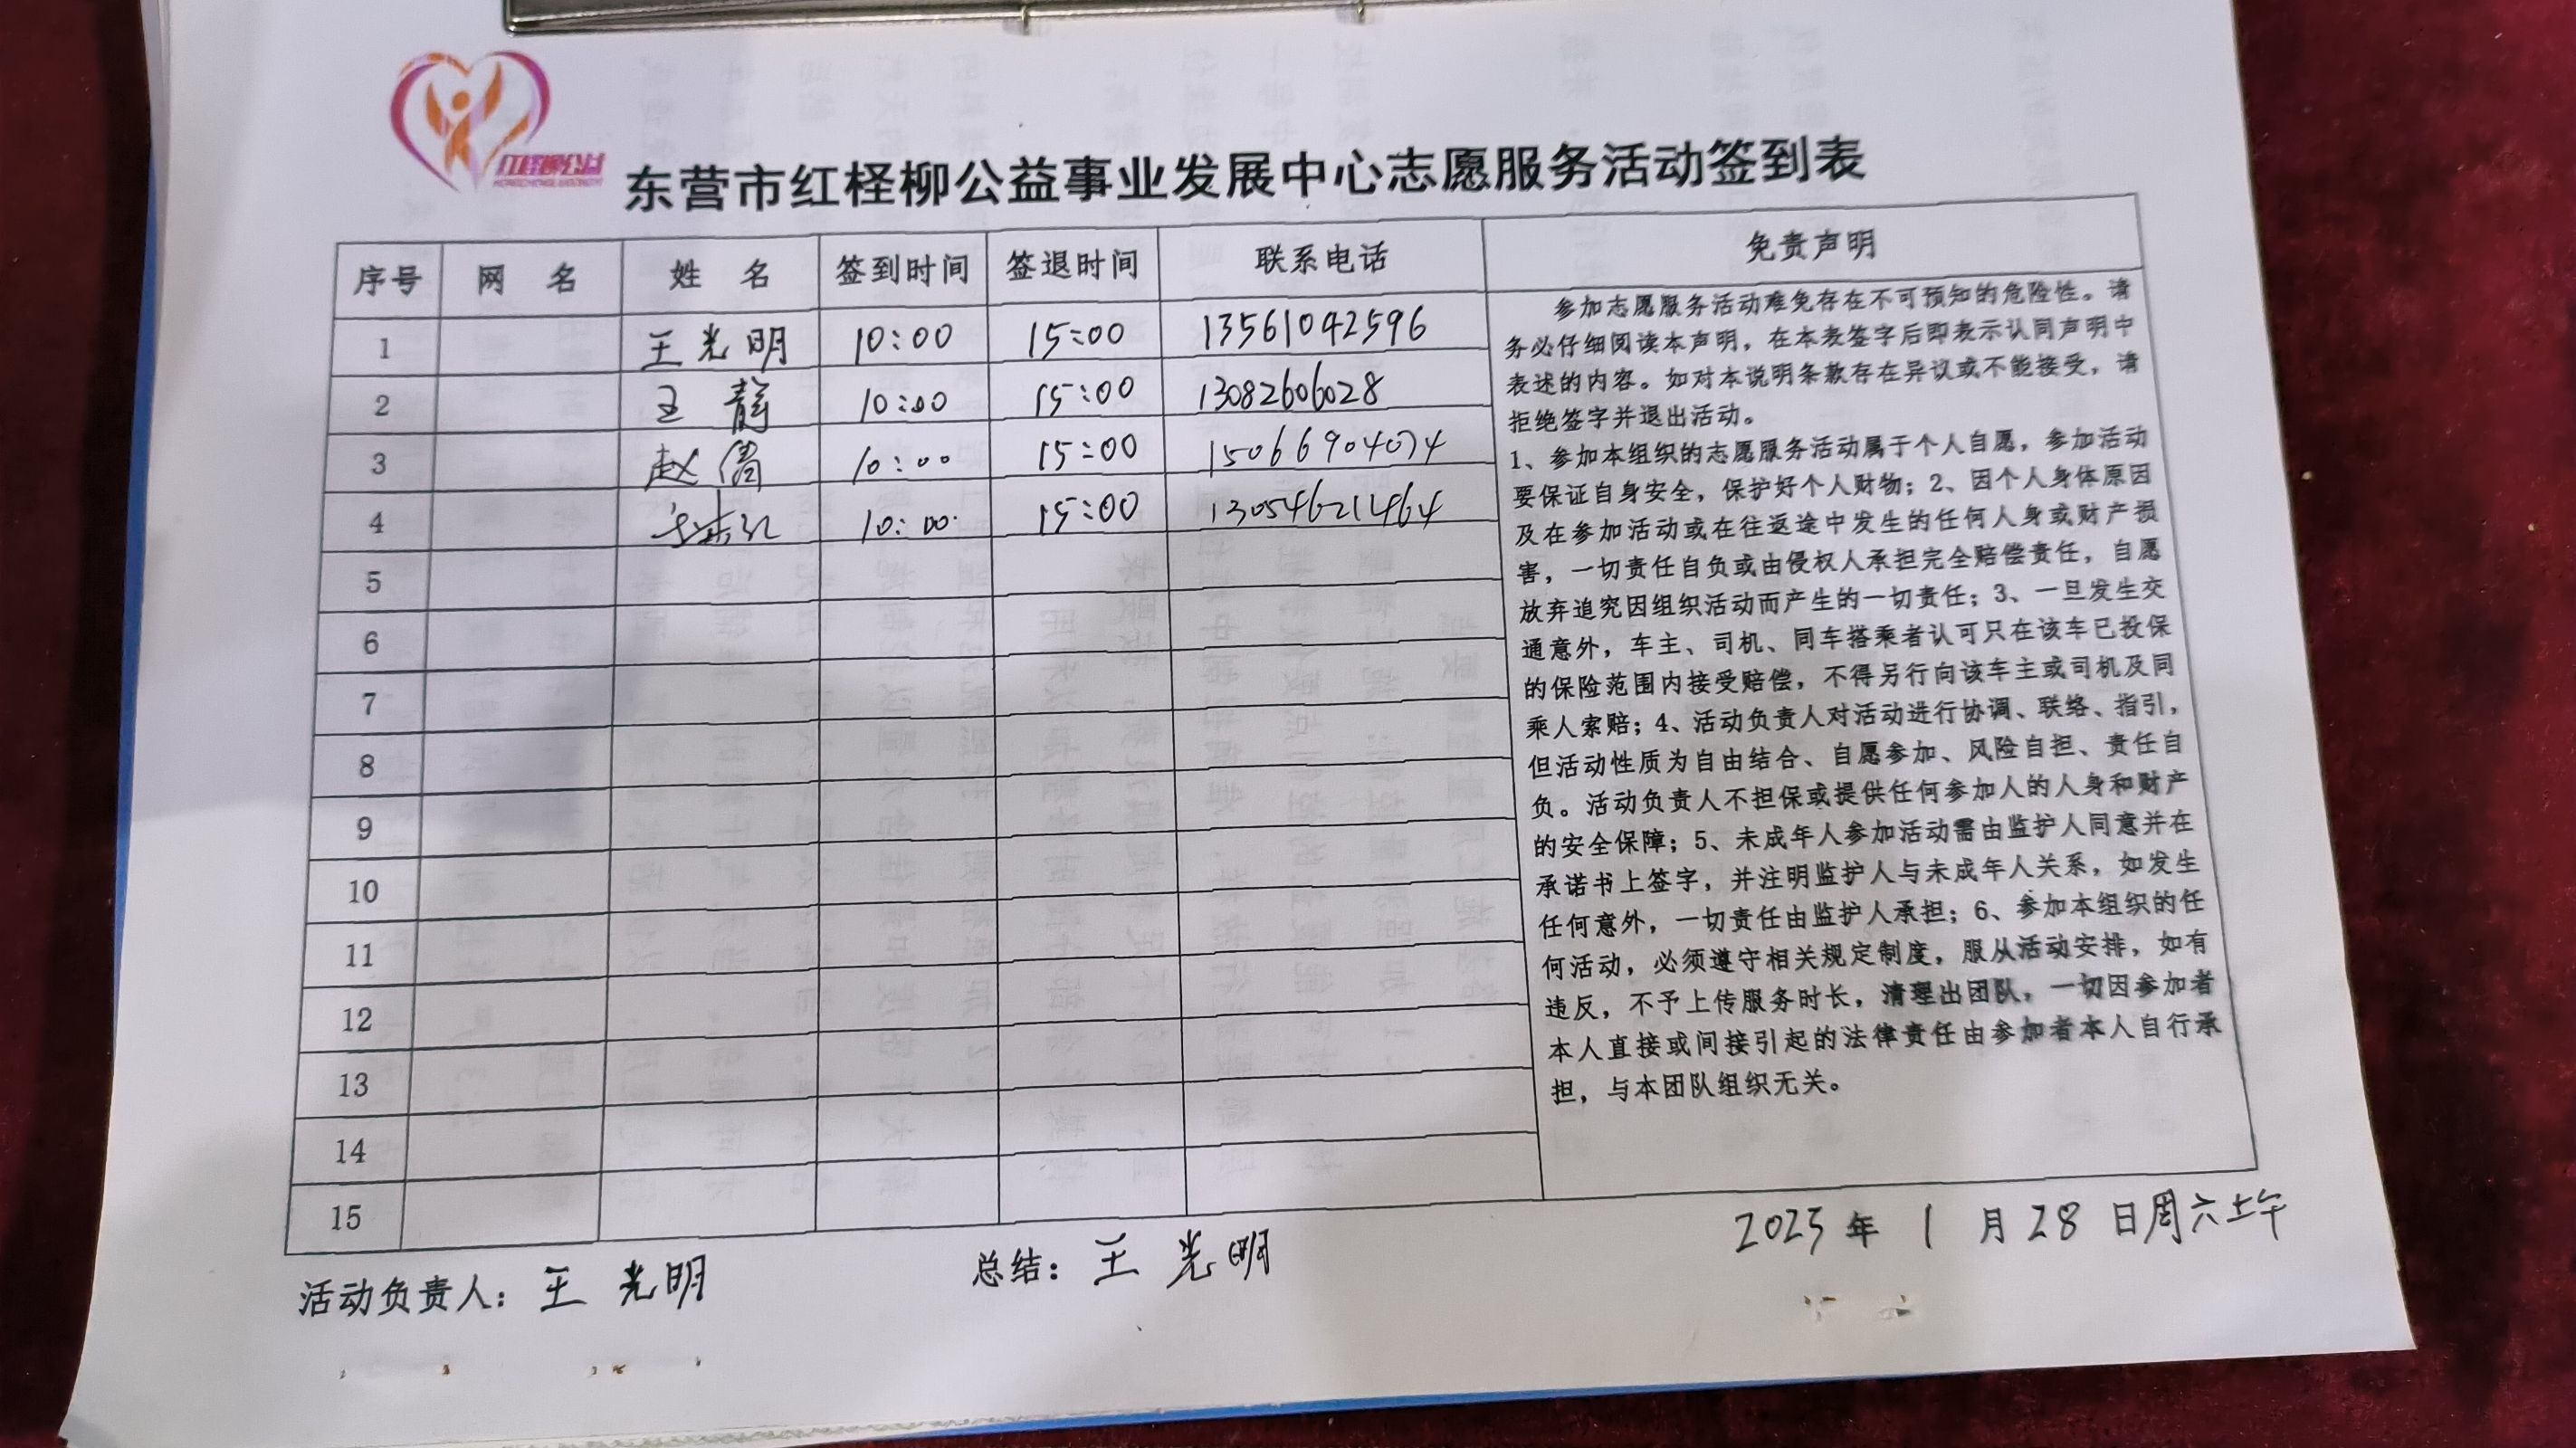 红柽柳公益
东营市红柽柳公益事业发展中心志愿服务活动签到表
序号 网 名 姓 名 签到时间 签退时间 联系电话 免责声明
1 王光明 10:00 15:00 13561042596
2 王 静 10:00 15:00 13082606028
3 赵 10:00 15:00 15066904074
4 10:00 15:00 13054621464
5
6
7
8
9
10
11
12
13
14
15
参加志愿服务活动难免存在不可预知的危险性。请
务必仔细阅读本声明，在本表签字后即表示认同声明中
表述的内容。如对本说明条款存在异议或不能接受，请
拒绝签字并退出活动。
1、参加本组织的志愿服务活动属于个人自愿，参加活动
要保证自身安全，保护好个人财物；2、因个人身体原因
及在参加活动或在往返途中发生的任何人身或财产损
害，一切责任自负或由侵权人承担完全赔偿责任，自愿
放弃追究因组织活动而产生的一切责任；3、一旦发生交
通意外，车主、司机、同车搭乘者认可只在该车已投保
的保险范围内接受赔偿，不得另行向该车主或司机及同
乘人索赔；4、活动负责人对活动进行协调、联络、指引，
但活动性质为自由结合、自愿参加、风险自担、责任自
负。活动负责人不担保或提供任何参加人的人身和财产
的安全保障；5、未成年人参加活动需由监护人同意并在
承诺书上签字，并注明监护人与未成年人关系，如发生
任何意外，一切责任由监护人承担；6、参加本组织的任
何活动，必须遵守相关规定制度，服从活动安排，如有
违反，不予上传服务时长，清理出团队，一切因参加者
本人直接或间接引起的法律责任由参加者本人自行承
担，与本团队组织无关。
活动负责人：王光明 总结：王光明 2023年1月28日周六上午